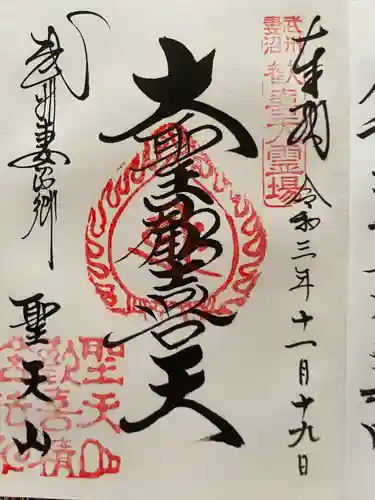 奉拝
令和三年十一月十九日
武州
妻沼
歓喜天霊場
大聖歓喜天
武州妻沼郷
聖天山